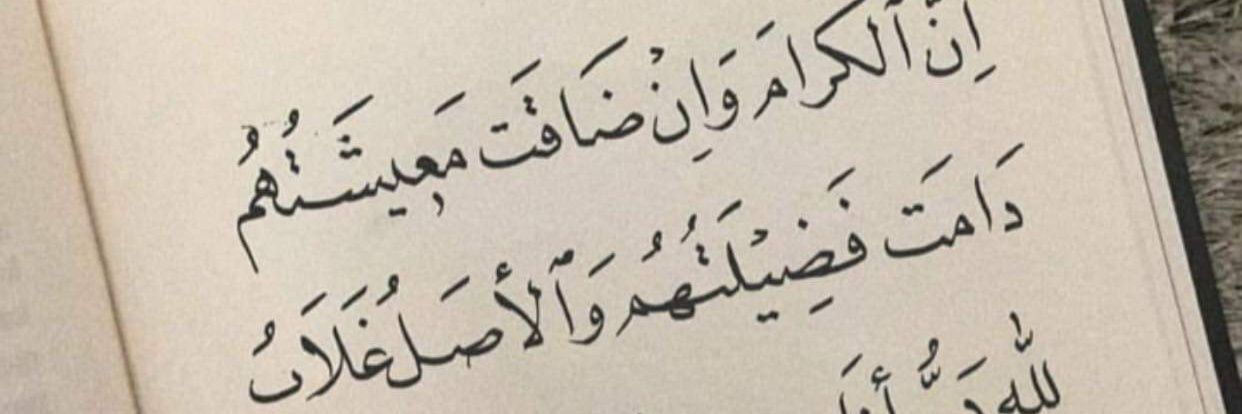 إِنَّ ٱلكرامَ وَإِنْ ضَاقَت مَعِيشَتُهُمُ
دَامَت فَضِيْلَتُهُمُ وَٱلأصَلُ غَلَابُ
للهِ دَرُّ أُنَا